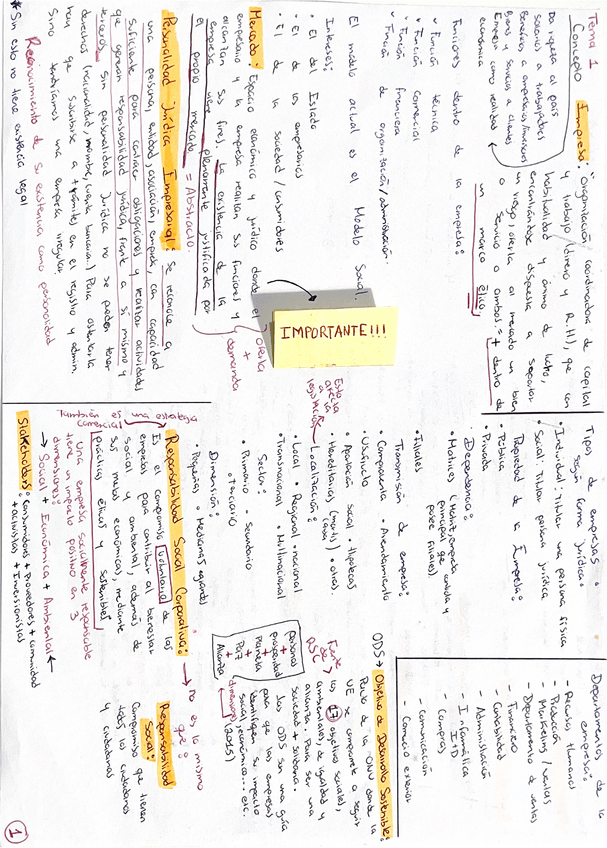 Tema 1
Concepto Empresa: "organización, coordinadora de capital
y trabajo (dinero y R.H), que con
habitualidad y ánimo de lucro,
encontrándose dispuesta a soportar
un riesgo, oferta al mercado un bien
o servicio o ambos = + dentro de
un marco ético
Da riqueza al país
salarios a trabajadores
Beneficios a empresarios/inversores
Bienes y servicios a clientes
Empresa como realidad
económica
Funciones dentro de la empresa:
• Función técnica
• Función comercial
• Función financiera
• Función de organización/administración.
El modelo actual es el Modelo Social.
Intereses:
• El del Estado
• El de los empresarios
• El de la sociedad/consumidores
Mercado: Espacio económico y jurídico donde el
empresario y la empresa realizan sus funciones y
alcanzan sus fines. La existencia de la
empresa viene plenamente justificada por
el propio mercado = Abstracto.
oferta
+
demanda
IMPORTANTE!!!
Personalidad Jurídica Empresarial: Se reconoce a
una persona, entidad, asociación, empresa, con capacidad
suficiente para contraer obligaciones y realizar actividades
que generan responsabilidad jurídica, frente a si mismo y
terceros. Sin personalidad Jurídica no se pueden tener
derechos (nacionalidad, nombre, cuenta bancaria...) Para ostentarla
hay que someterse a trámites en el registro y admin.
Sino tendríamos una empresa irregular.
Reconocimiento de su existencia como personalidad
* Sin esto no tiene existencia legal
Tipos de empresas:
según forma jurídica:
• Individual: titular una persona física
• Social: titular persona jurídica
Propiedad de la Empresa:
• Pública
• Privada
Dependencia:
• Matrices (
principal que controla y
posee filiales)
• Filiales
Transmisión de empresa:
• Compraventa • Arrendamiento
• Usufructo
• Aportación social • Hipotecas
• Hereditarias (mortis causa) • otros.
Localización:
• Local • Regional • nacional
• Transnacional • Multinacional
Sector:
• Primario - Secundario
• Terciario
Dimensión:
• Pequeñas • Medianas • grandes
Esto afecta a
legislación
Responsabilidad Social Corporativa:
Es el compromiso voluntario de las
empresas para contribuir al bienestar
social y ambiental, además de
sus metas económicas, mediante
prácticas éticas y sostenibles
también es una estrategia
comercial
Una empresa socialmente responsable
tiene un impacto positivo en 3
dimensiones:
→ Social + Económica + Ambiental
Stakeholders: consumidores + Proveedores + comunidad
+ activistas + Inversionistas
Departamentos de la
empresa:
- Recursos Humanos
- Producción
- Marketing / ventas
- Departamento de ventas
- Financiero
- Contabilidad
- Administración
- Informática
I+D
- Compras
- comunicación
- Comercio exterior
ODS → Objetivo de Desarrollo Sostenible:
Pacto de la ONU donde la
UE se compromete a seguir
los 17 objetivos sociales,
ambientales, de igualdad y
alianza. Para ser una
sociedad + solidaria.
Los ODS son una guía
para que las empresas
identifiquen su impacto
social, económico... etc.
(2015)
(dimensiones)
Fuente de
RSC
Personas
+
prosperidad
+
Planeta
+
Paz
+
Alianza
→ no es lo mismo
que:
Responsabilidad
Social:
Compromiso que tienen
todos los ciudadanos
y ciudadanas
1